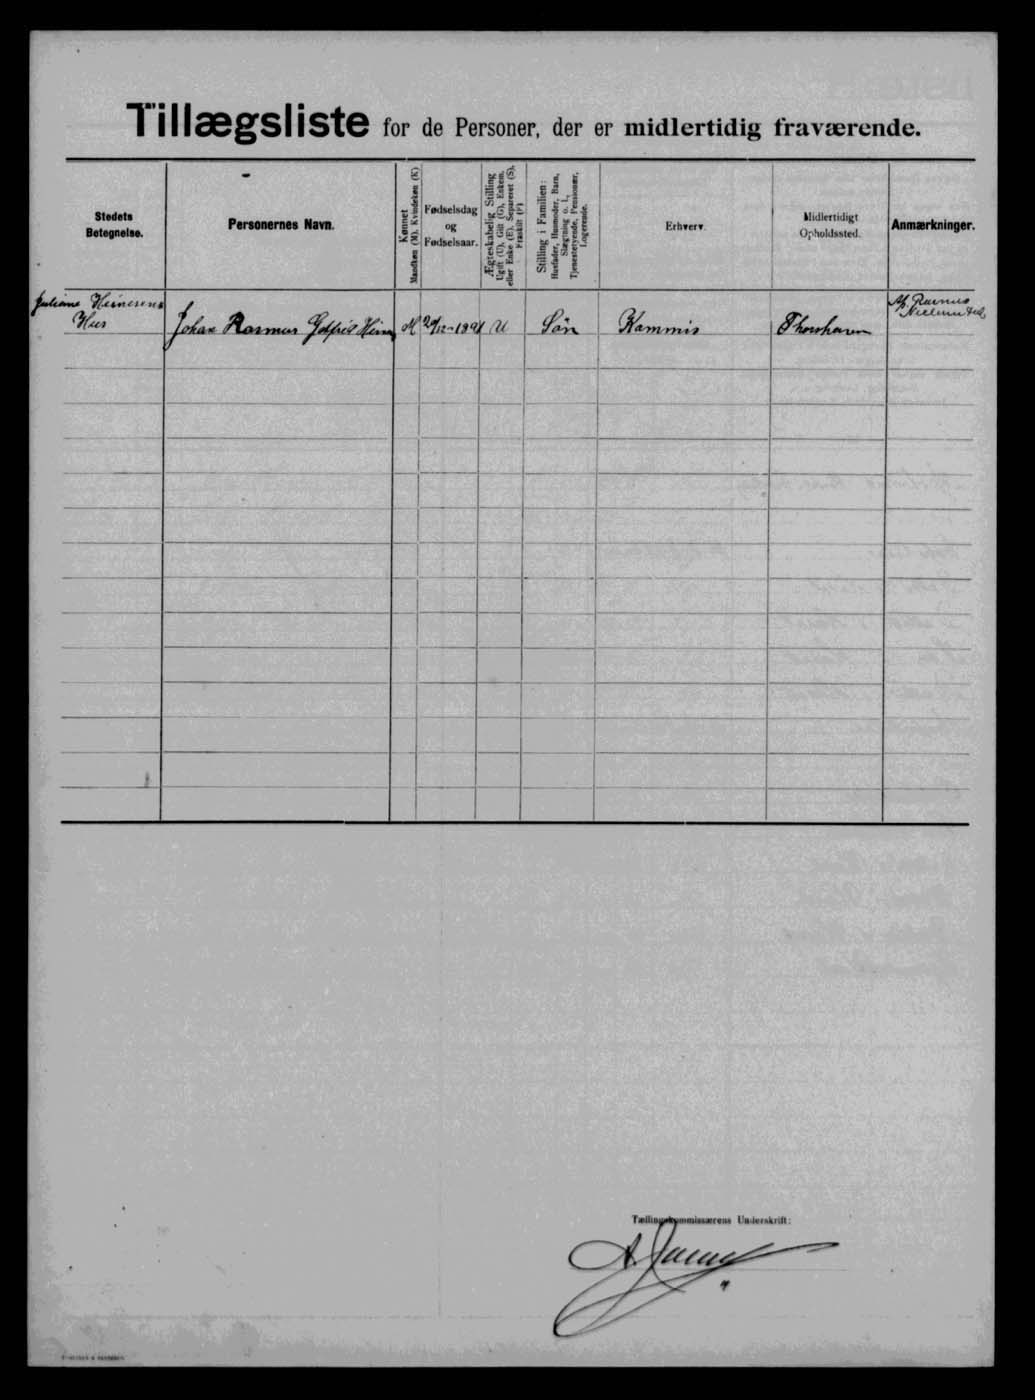 Tillægsliste for de Personer, der er midlertidig fraværende.
Stedets Betegnelse.
Personernes Navn.
Kønnet
Mandkøn (M). Kvindekøn (K)
Fødselsdag
og
Fødselsaar.
Ægteskabelig Stilling
Ugift (U), Gift (G), Enkem.
eller Enke (E), Separeret (S),
Fraskilt (F)
Stilling i Familien:
Husfader, Husmoder, Barn,
Slægtning o. l.,
Tjenestetyende, Pensionær,
Logerende.
Erhverv.
Midlertidigt
Opholdssted.
Anmærkninger.
Juliane Heinesens
Hus
Johan Rasmus
M
U
Søn
Kommis
Thorshavn
Tællingskommissærens Underskrift: